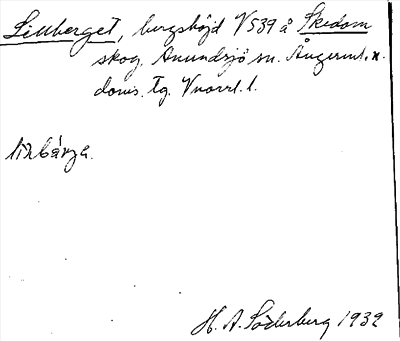 Lillberget, bergshöjd V539 å Skedom
skog. Anundsjö sn. Ångerml. n.
doms. Tg. Vnorrl. l.
H. A. Söderberg 1932